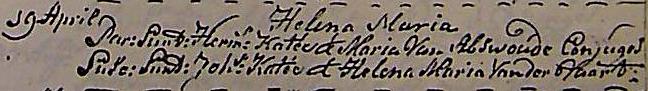 19 April Helena Maria
Par: Sunt: Herms: Katee & Maria Van Abswoude Conjuges
Susc: Sunt: Johs: Katee & Helena Maria Vander